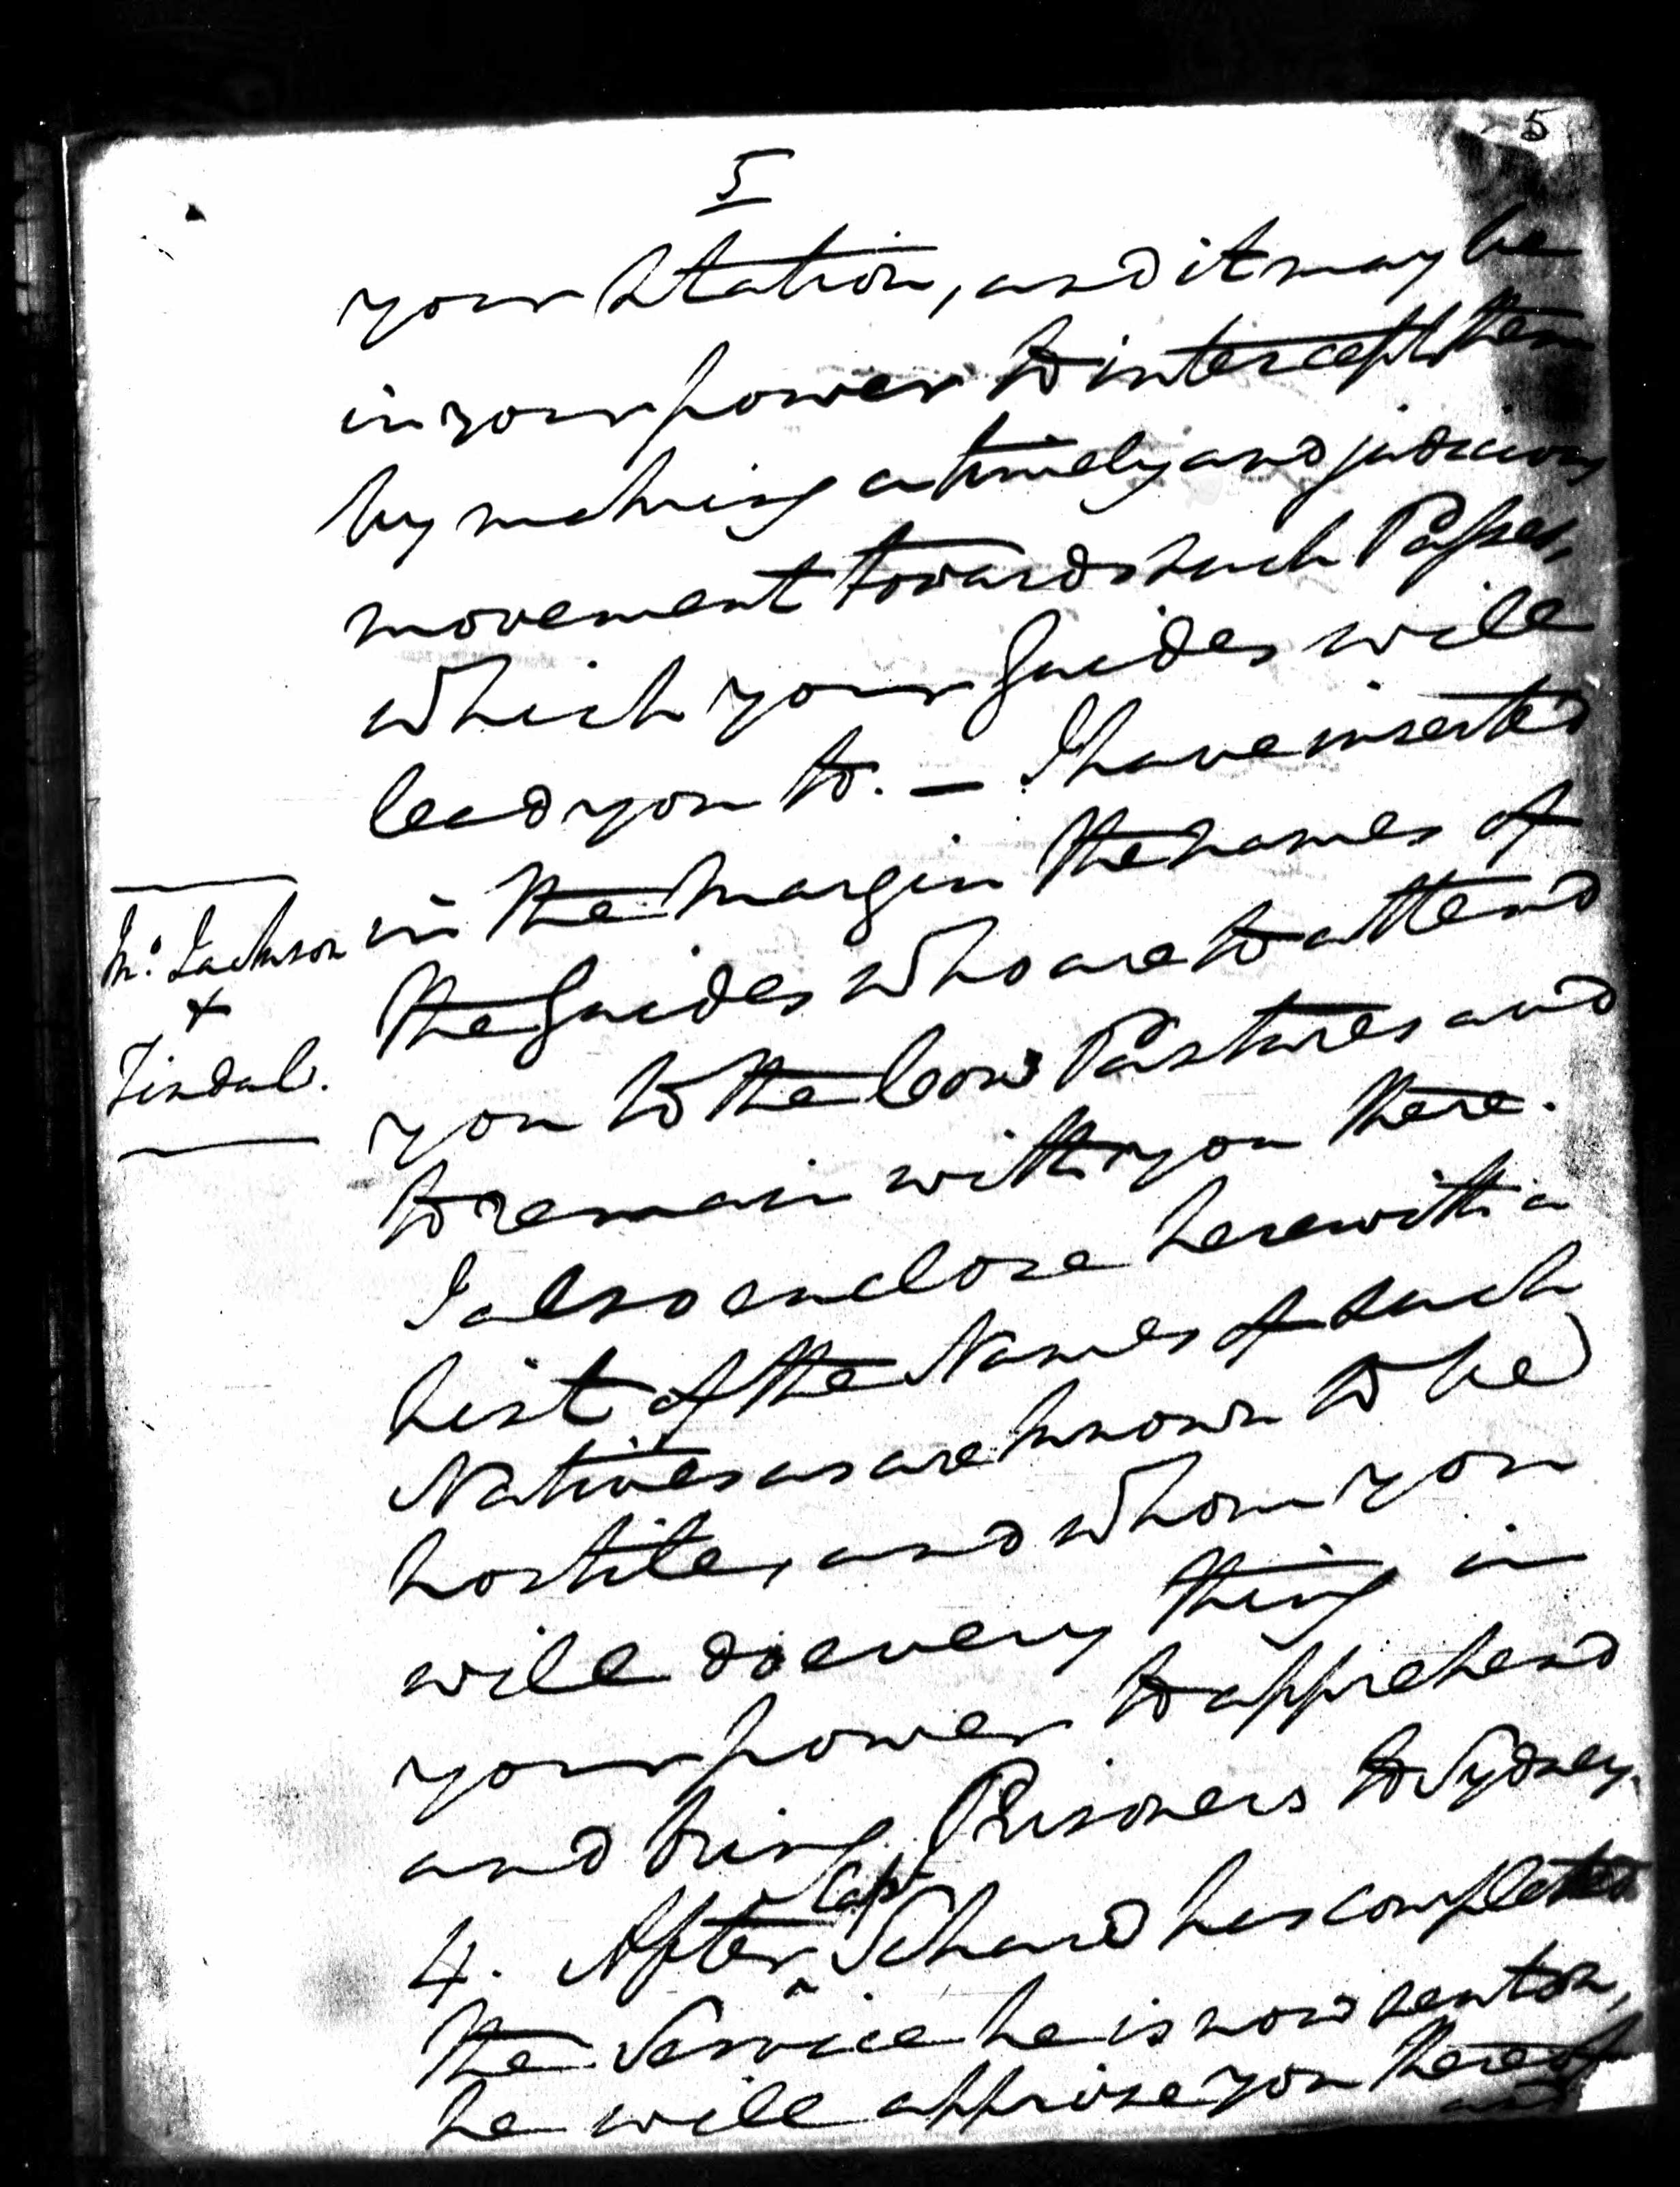 5
5
your Station, and it may be
in your power to intercept them
by making a timely and judicious
movement towards such Passes,
which your Guides will
lead you to. — I have inserted
in the Margin the names of
Mr. Jackson
&
Tindal.
the Guides who are to attend
you to the Cow Pastures and
to remain with you there.
I also enclose herewith a
List of the Names of such
Natives as are known to be
hostile, and whom you
will do every thing in
your power to apprehend
and bring Prisoners to Sydney.
4. After Capt. Schaw has completed
the Service he is now sent on,
he will apprise you thereof
and